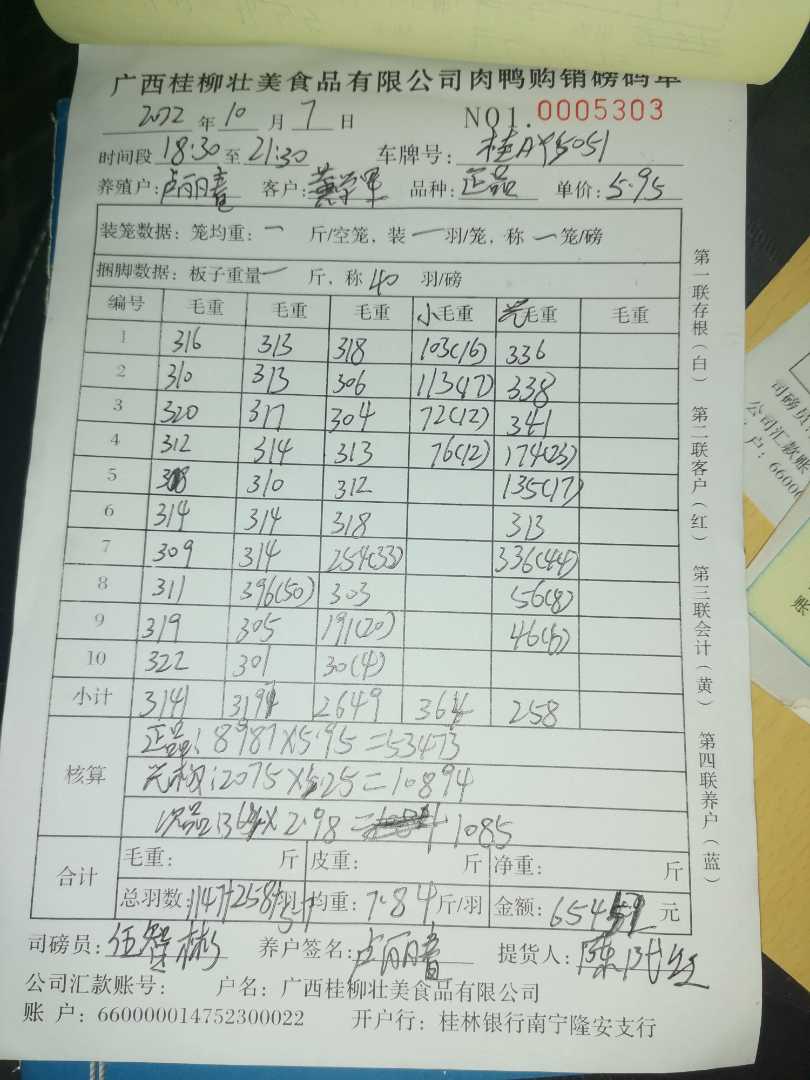 广西桂柳壮美食品有限公司肉鸭购销磅码单
2022 年 10 月 7 日 NO1.0005303
时间段 18:30 至 21:30 车牌号: 桂AY5051
养殖户: 卢丽 客户: 黄 品种: 正品 单价: 5.95
装笼数据: 笼均重: 一 斤/空笼, 装 一 羽/笼, 称 一 笼/磅
捆脚数据: 板子重量 一 斤, 称 40 羽/磅
编号 毛重 毛重 毛重 小毛重 毛重 毛重
1 316 313 318 103(16) 336
2 310 313 306 113(17) 338
3 320 317 304 72(12) 341
4 312 314 313 76(12) 174(23)
5 308 310 312 135(17)
6 314 314 318 313
7 309 314 254(33) 336(44)
8 311 396(50) 303 56(8)
9 319 305 191(20) 46(6)
10 322 301 30(4)
小计 3141 3197 2649 364 258
核算
正品: 8987×5.95=53473
:2075×5.25=10894
次品:364×2.98= 1085
合计
毛重: 斤 皮重: 斤 净重: 斤
总羽数: 1147+258+57 均重: 7.84 斤/羽 金额: 65452 元
司磅员: 伍 彬 养户签名: 卢丽 提货人: 陈
公司汇款账号: 户名: 广西桂柳壮美食品有限公司
账 户: 660000014752300022 开户行: 桂林银行南宁隆安支行
第一联存根(白) 第二联客户(红) 第三联会计(黄) 第四联养户(蓝)
司磅员
公司汇款账
户: 6600
账